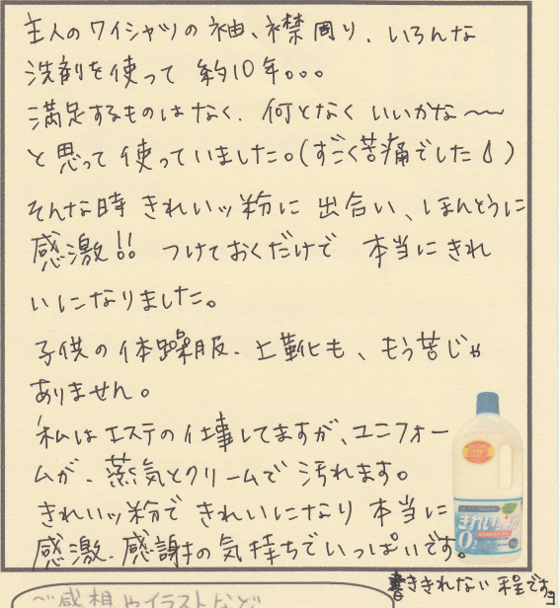 主人のワイシャツの袖、襟周り、いろんな
洗剤を使って 約10年。。。
満足するものはなく、何となくいいかな〜〜
と思って使っていました。(すごく苦痛でした)
そんな時 きれいッ粉に 出合い、ほんとうに
感激!! つけておくだけで 本当にきれ
いになりました。
子供の体操服、上靴も、もう苦じゃ
ありません。
私はエステの仕事してますが、ユニフォー
ムが、蒸気とクリームで 汚れます。
きれいッ粉で きれいになり 本当に
感激、感謝の気持ちでいっぱいです。
書ききれない 程です
きれいッ粉
O2
ご感想やイラストなど